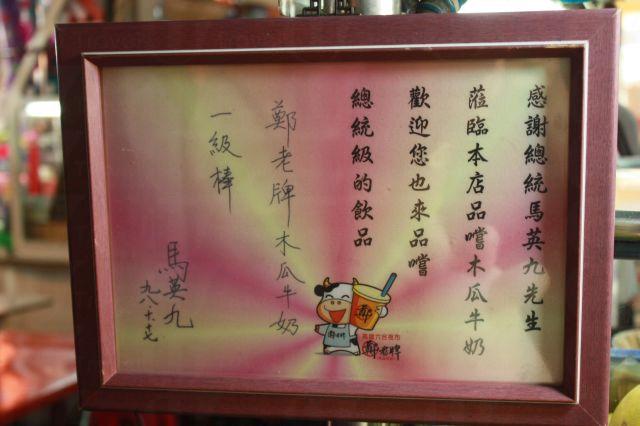 感謝總統馬英九先生
蒞臨本店品嚐木瓜牛奶
歡迎您也來品嚐
總統級的飲品
鄭老牌木瓜牛奶
一級棒
馬英九
鄭
鄭老牌
高雄六合夜市
鄭老牌